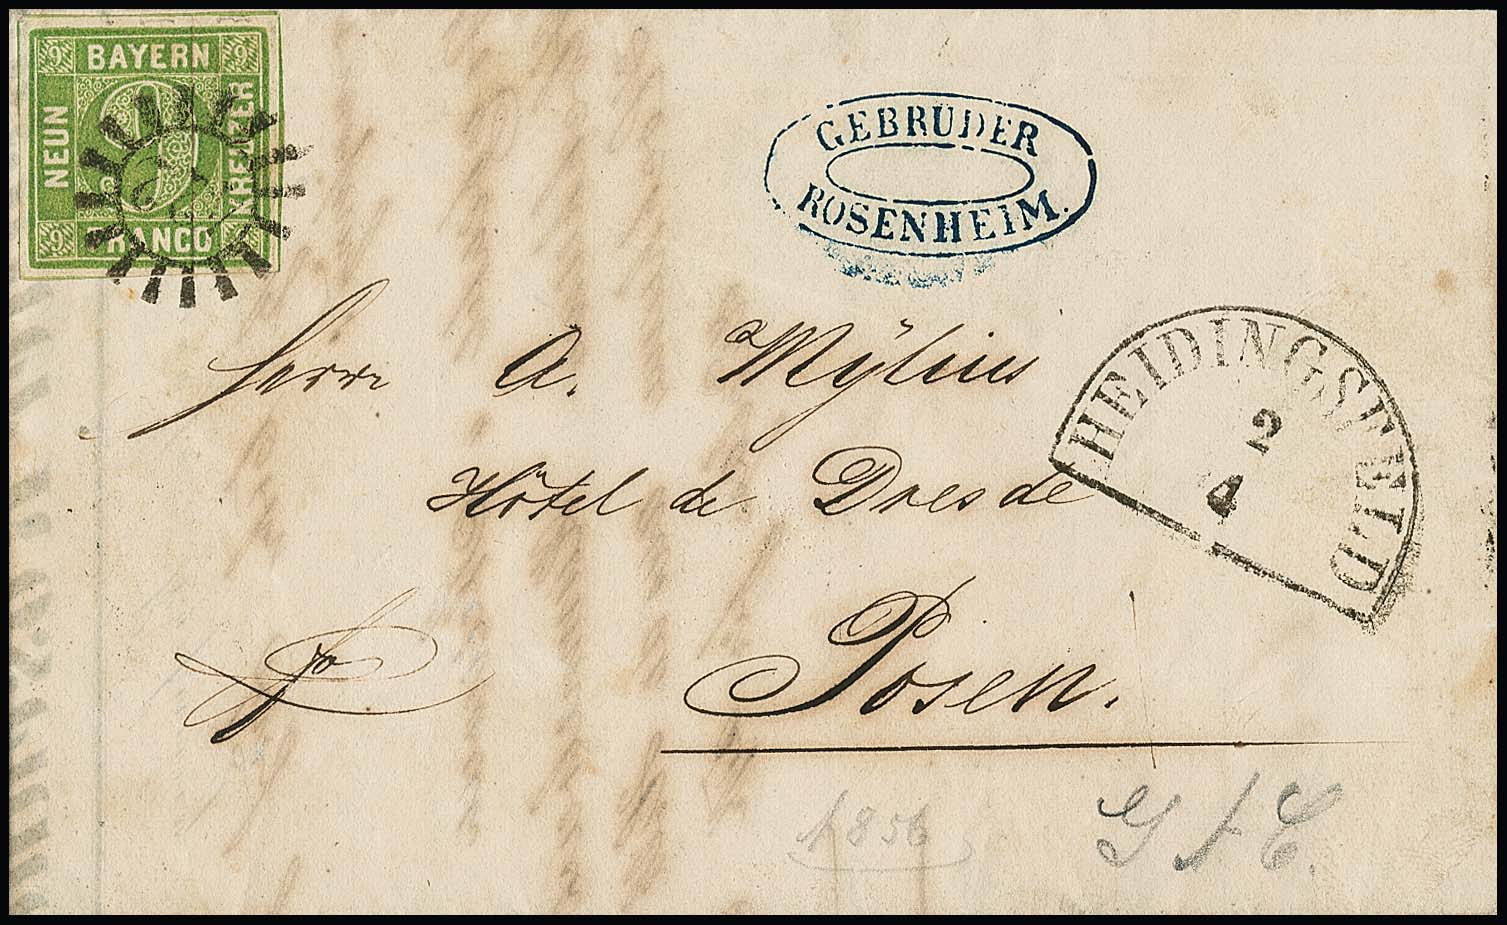 BAYERN
9 9
NEUN
9
KREUZER
9 9
FRANCO
GEBRÜDER
ROSENHEIM.
HEIDINGSFELD
2
4
Herrn A. Mylius
Hôtel de Dresde
Posen.
1856